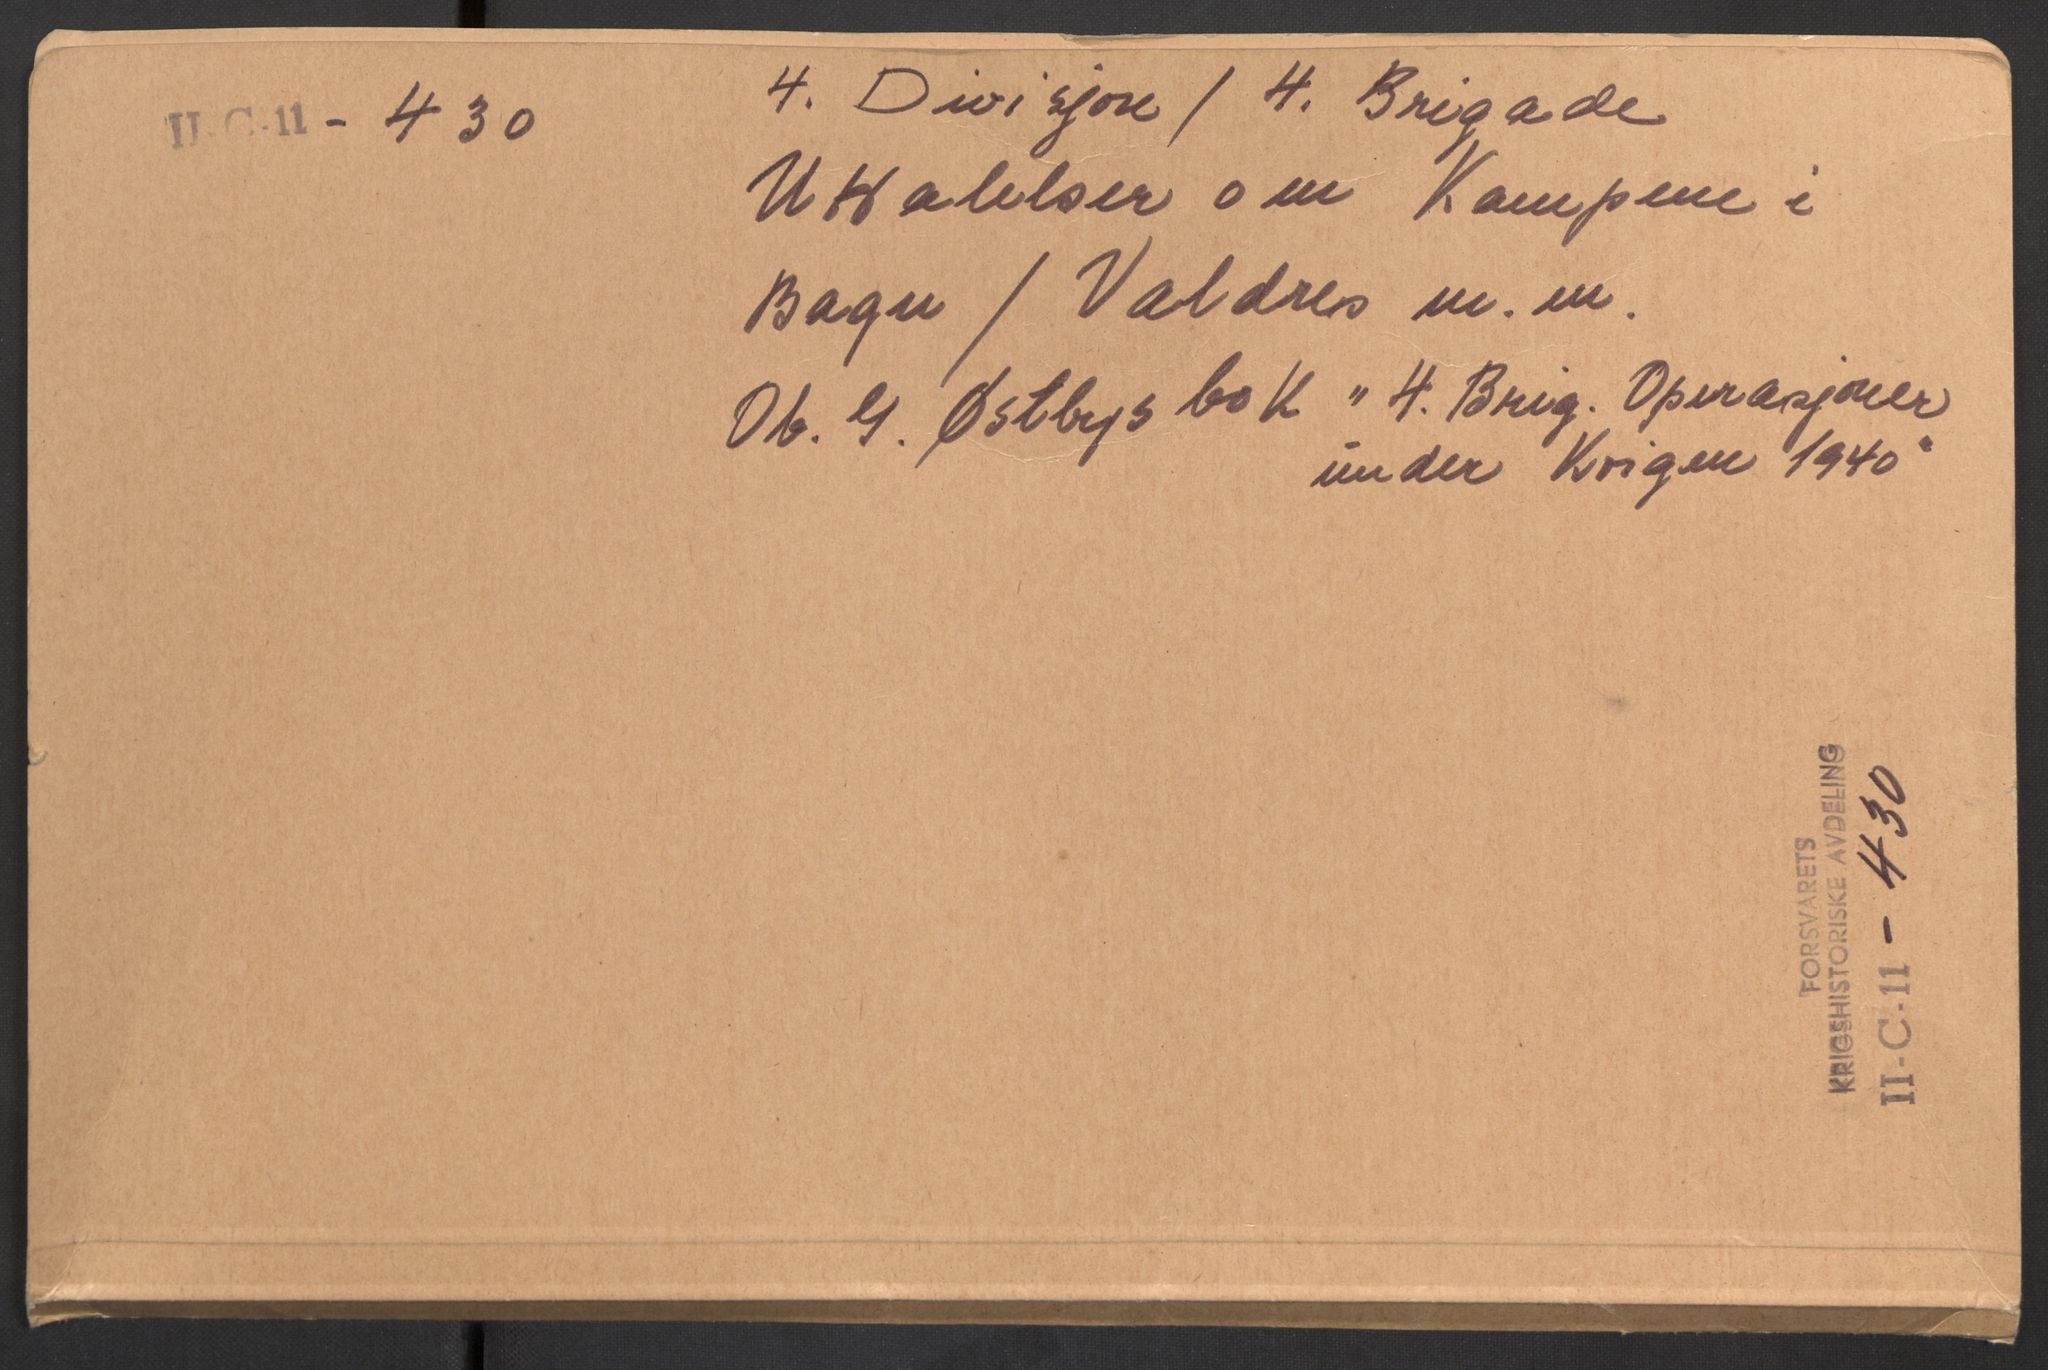 II-C-11 - 430
4. Divisjon / 4. Brigade
Uttalelser om Kampene i
Bagn / Valdres m. m.
Ob. G. Østbys bok "4. Brig. Operasjoner
under Krigen 1940"
FORSVARETS
KRIGSHISTORISKE AVDELING
II-C-11 - 430